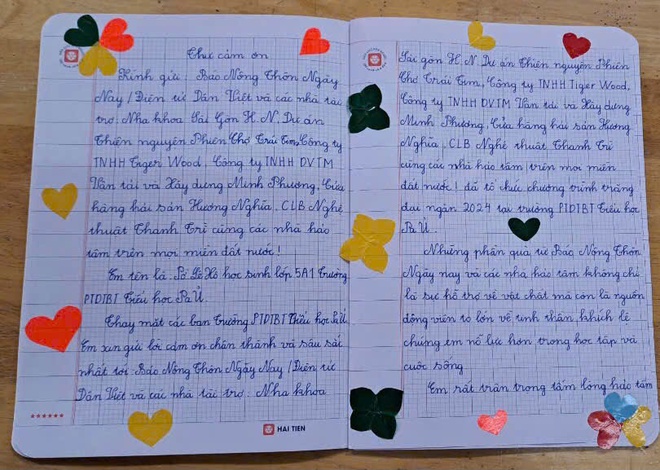 Thư cảm ơn
Kính gửi: Báo Nông Thôn Ngày
Nay/Điện tử Dân Việt và các nhà tài
trợ: Nha khoa Sài Gòn H.N. Dự án
Thiện nguyện Phiên Chợ Trái Tim, Công ty
TNHH Tiger Wood, Công ty TNHH DVTM
Vận tải và Xây dựng Minh Phương, Cửa
hàng hải sản Hương Nghĩa, CLB Nghệ
thuật Thanh Trì cùng các nhà hảo
tâm trên mọi miền đất nước!
Em tên là: Pờ Lé Hò học sinh lớp 5A1 Trường
PTDTBT Tiểu học Pa Ủ.
Thay mặt các bạn trường PTDTBT Tiểu học Pa Ủ.
Em xin gửi lời cảm ơn chân thành và sâu sắc
nhất tới: Báo Nông Thôn Ngày Nay/Điện tử
Dân Việt và các nhà tài trợ: Nha khoa
HẢI TIẾN
Sài Gòn H.N. Dự án Thiện nguyện Phiên
Chợ Trái Tim, Công ty TNHH Tiger Wood,
Công ty TNHH DVTM Vận tải và Xây dựng
Minh Phương, Cửa hàng hải sản Hương
Nghĩa, CLB Nghệ thuật Thanh Trì
cùng các nhà hảo tâm trên mọi miền
đất nước! đã tổ chức chương trình trăng
đại ngàn 2024 tại trường PTDTBT Tiểu học
Pa Ủ.
Những phần quà từ Báo Nông Thôn
Ngày nay và các nhà hảo tâm không chỉ
là sự hỗ trợ về vật chất mà còn là nguồn
động viên to lớn về tinh thần, khích lệ
chúng em nỗ lực hơn trong học tập và
cuộc sống
Em rất trân trọng tấm lòng hảo tâm